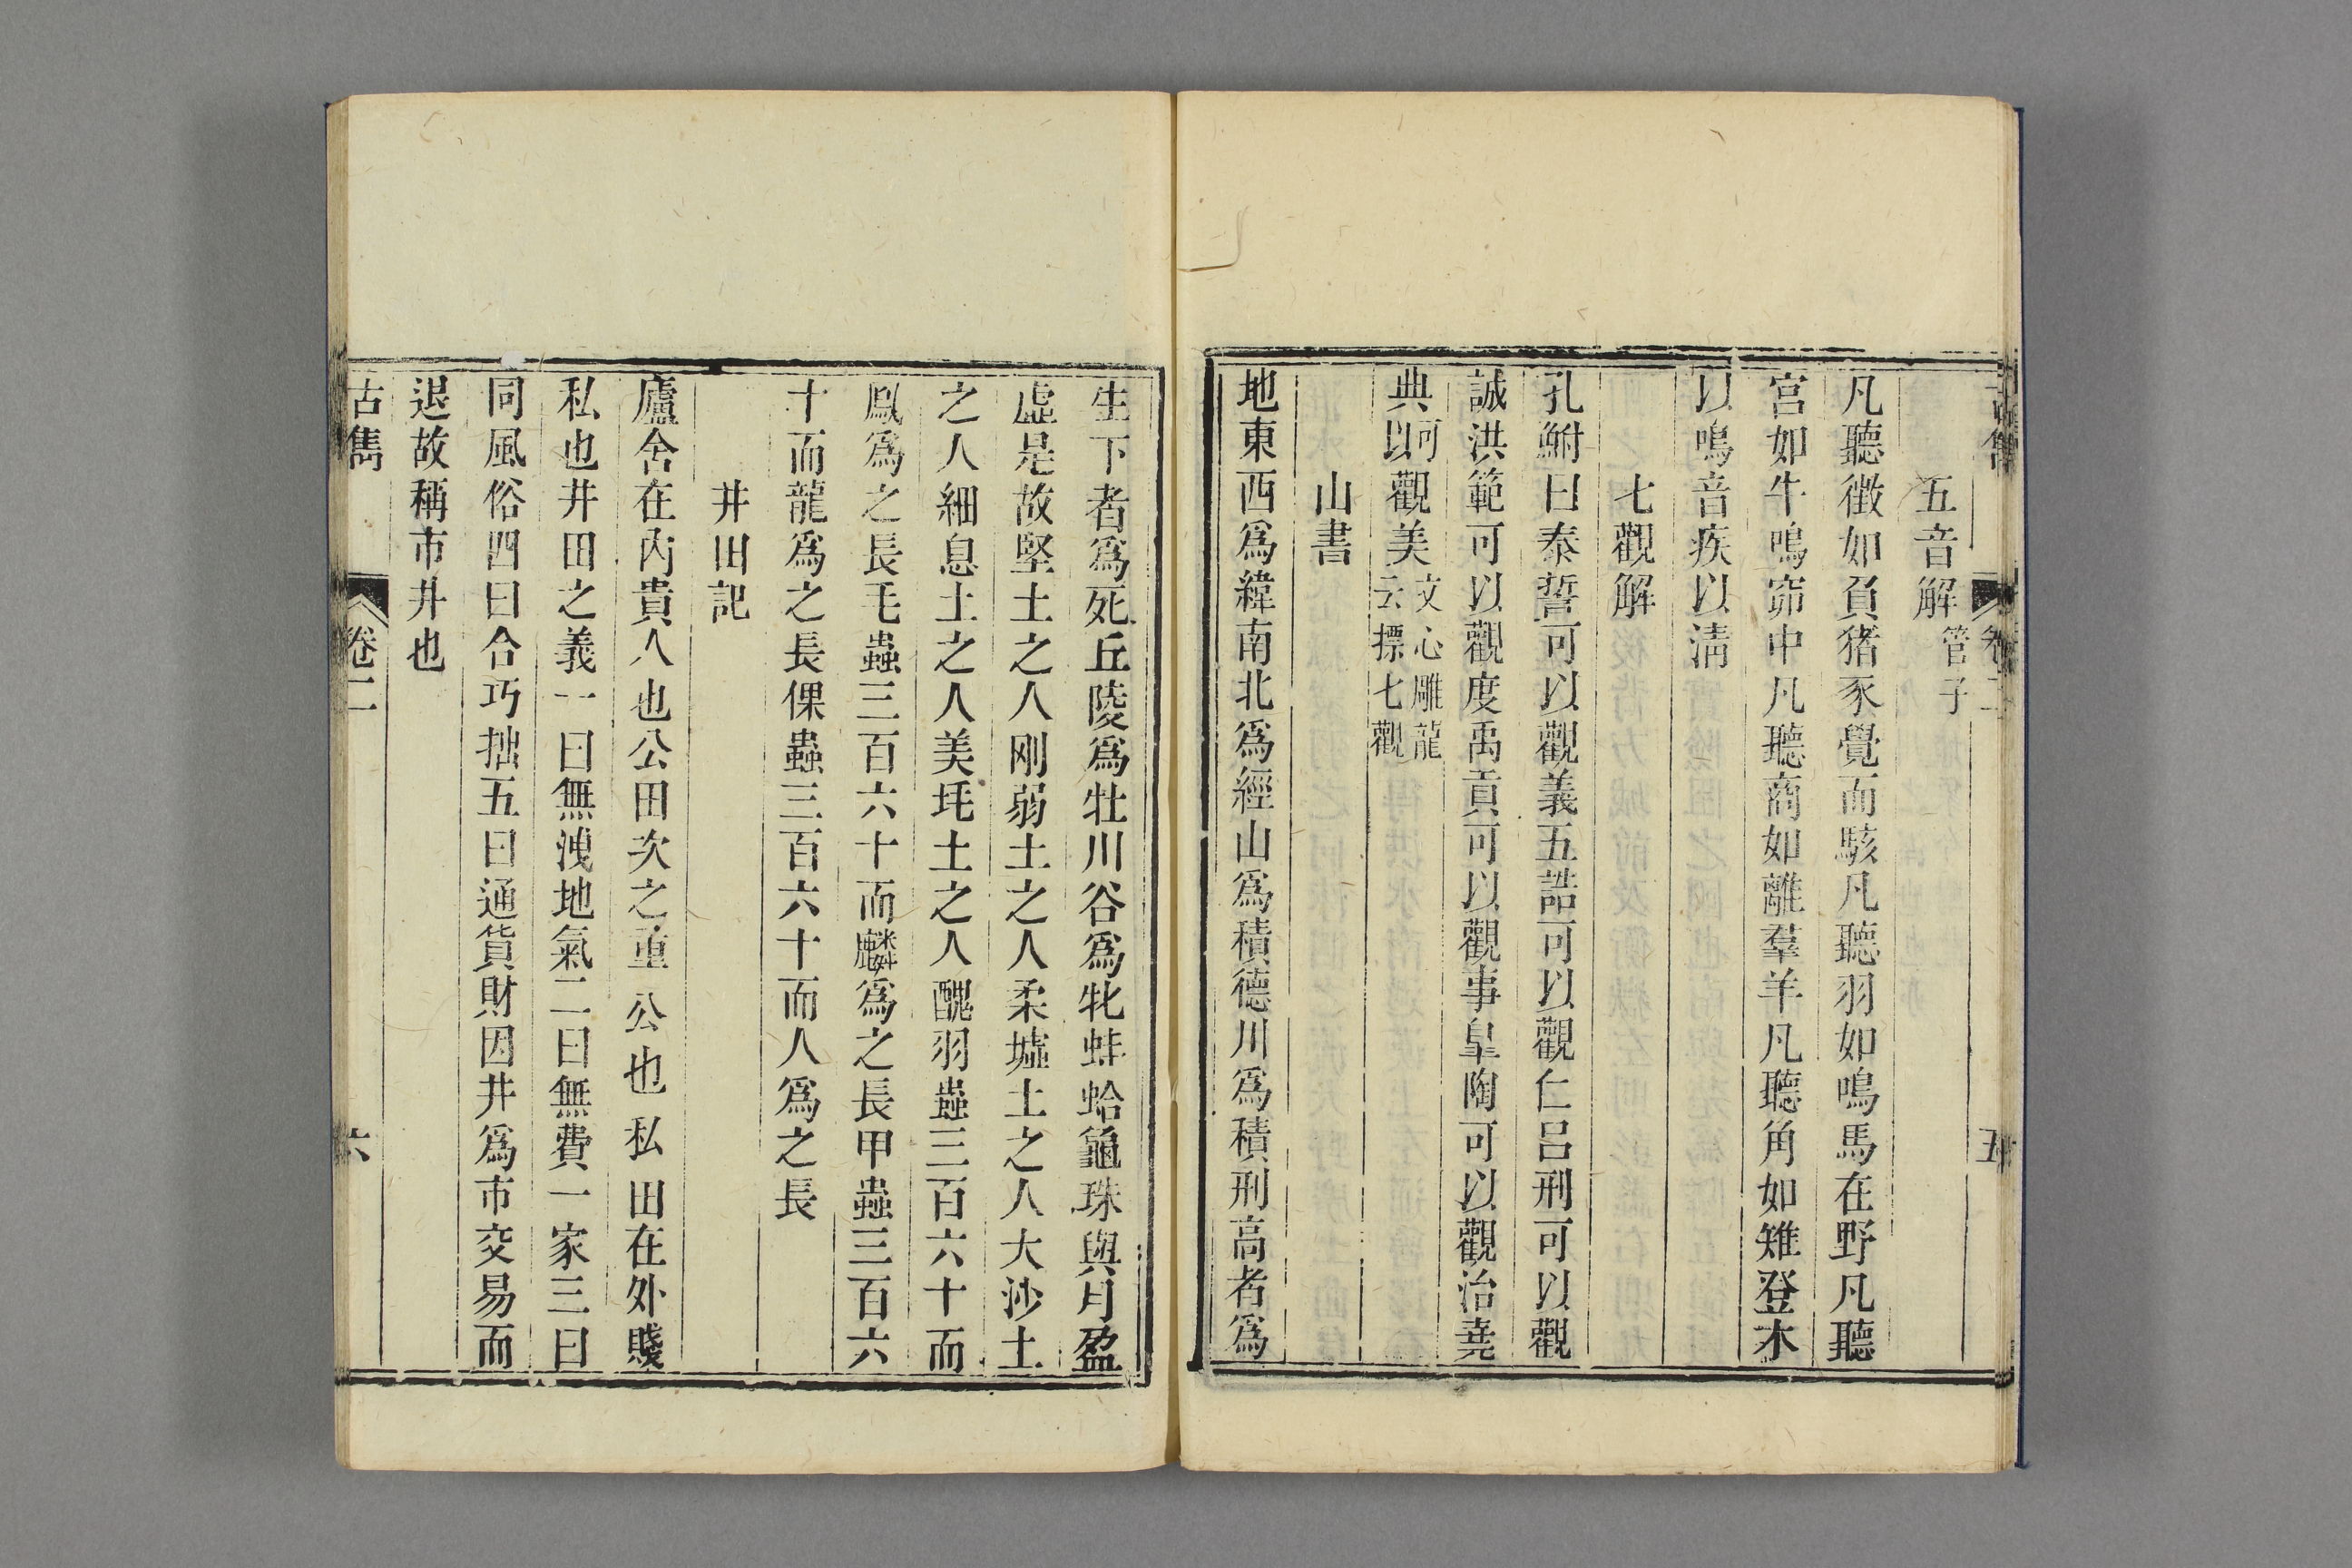 五音解管子
凡聽徵如負猪豕覺而駭凡聽羽如鳴馬在野凡聽
宮如牛鳴窌中凡聽商如離羣羊凡聽角如雉登木
以鳴音疾以淸
七觀解
孔鮒曰泰誓可以觀義五誥可以觀仁呂刑可以觀
誠洪範可以觀度禹貢可以觀事皐陶可以觀治堯
典可以觀美文心雕龍云摽七觀
山書
地東西爲緯南北爲經山爲積德川爲積刑高者爲
生下者爲死丘陵爲牡川谷爲牝蚌蛤龜珠與月盈
虛是故堅土之人剛弱土之人柔墟土之人大沙土
之人細息土之人美垞土之人醜羽蟲三百六十而
鳳爲之長毛蟲三百六十而麟爲之長甲蟲三百六
十而龍爲之長倮蟲三百六十而人爲之長
井田記
廬舍在內貴人也公田次之重公也私田在外賤
私也井田之義一曰無洩地氣二曰無費一家三曰
同風俗四曰合巧拙五曰通貨財因井爲市交易而
退故稱市井也
古雋 卷二 六